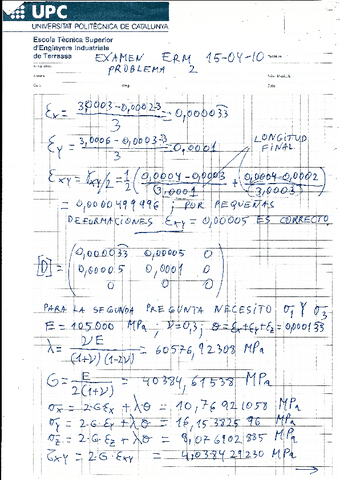 UPC
UNIVERSITAT POLITÈCNICA DE CATALUNYA
Escola Tècnica Superior
d'Enginyeria Industrials
de Terrassa
EXAMEN ERM 15-04-10
PROBLEMA 2
εx = (3,0003-0,0002-3)/3 = 0,000033
εy = (3,0006-0,0003-3)/3 = 0,0001
LONGITUD
FINAL
εxy = γxy/2 = 1/2 ( (0,0004-0,0003)/3,0001 + (0,0004-0,0002)/3,0003 )
= 0,0000499996 ; POR PEQUEÑAS
DEFORMACIONES εxy = 0,00005 ES CORRECTO.
[D] = ( 0,000033 0,00005 0
0,00005 0,0001 0
0 0 0 )
PARA LA SEGUNDA PREGUNTA NECESITO σ1 Y σ3
E = 105.000 MPa ; ν=0,3 ; θ = εx+εy+εz = 0,000133
λ = νE/((1+ν)(1-2ν)) = 60576,92308 MPa
G = E/(2(1+ν)) = 40384,61538 MPa
σx = 2·G·εx + λθ = 10,76921058 MPa
σy = 2·G·εy + λθ = 16,15382596 MPa
σz = 2·G·εz + λθ = 8,076902885 MPa
τxy = 2·G·εxy = 4,038429230 MPa